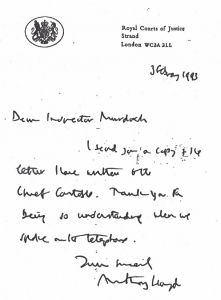 Royal Courts of Justice
Strand
London WC2A 2LL
3 February 1993
Dear Inspector Murdoch
I send you a copy of the
letter I have written to the
Chief Constable. Thank you for
being so understanding when we
spoke on the telephone.
Yours sincerely
Anthony Lloyd